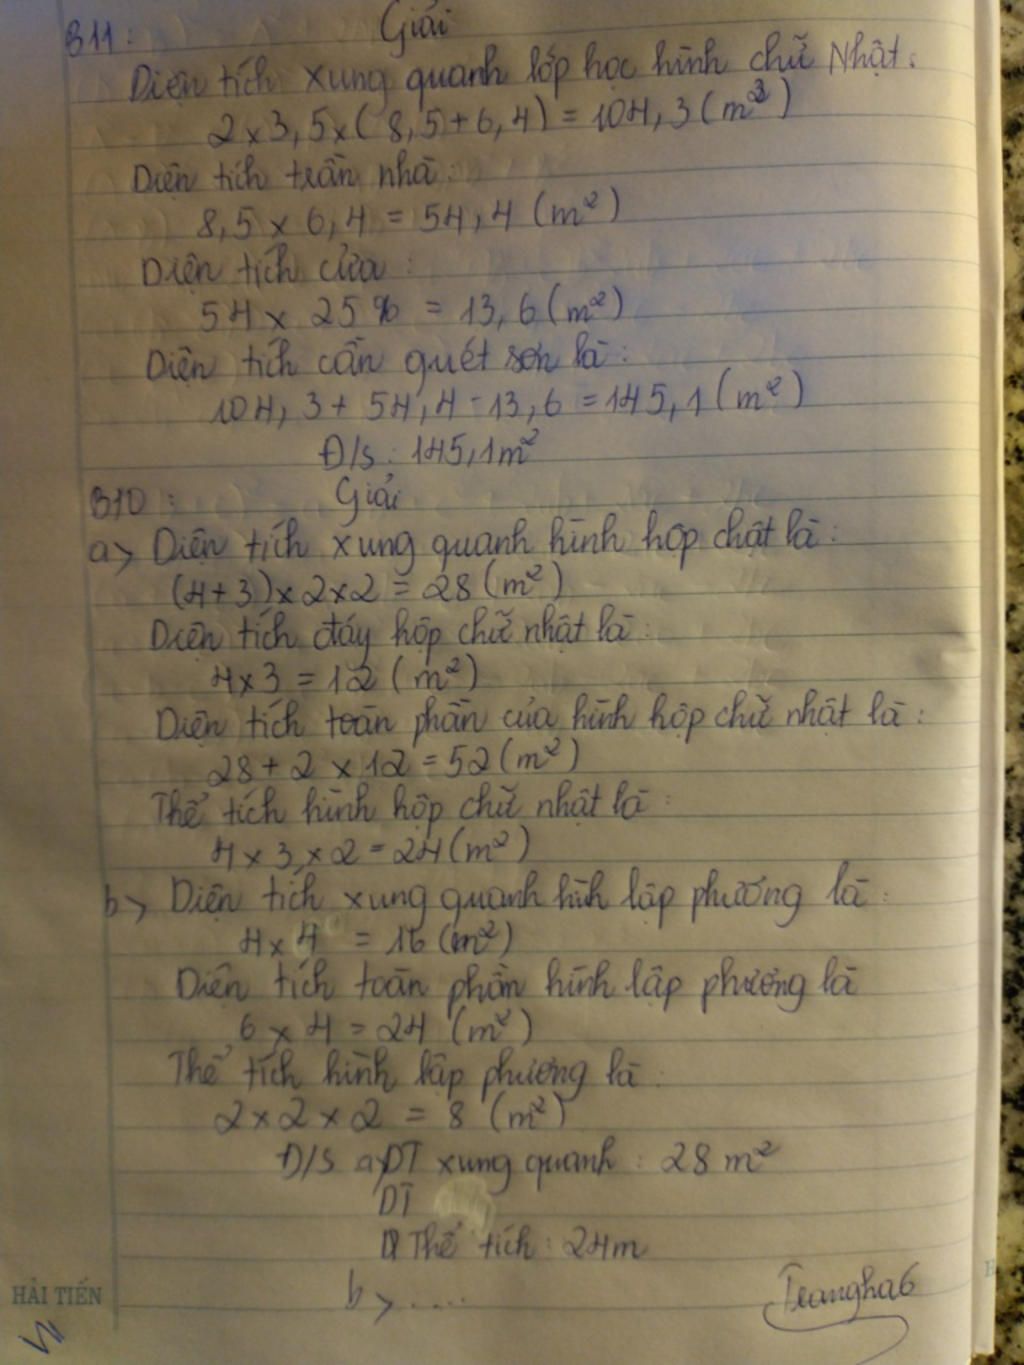 B11: Giải
Diện tích xung quanh lớp học hình chữ Nhật:
2 x 3,5 x ( 8,5 + 6,4) = 104,3 (m²)
Diện tích trần nhà:
8,5 x 6,4 = 54,4 (m²)
Diện tích cửa:
54 x 25% = 13,6 (m²)
Diện tích cần quét sơn là:
104,3 + 54,4 - 13,6 = 145,1 (m²)
Đ/s: 145,1m²
B10: Giải
a> Diện tích xung quanh hình hộp chật là:
(4+3) x 2 x 2 = 28 (m²)
Diện tích đáy hộp chữ nhật là:
4 x 3 = 12 (m²)
Diện tích toàn phần của hình hộp chữ nhật là:
28 + 2 x 12 = 52 (m²)
Thể tích hình hộp chữ nhật là:
4 x 3 x 2 = 24 (m²)
b> Diện tích xung quanh hình lập phương là:
4 x 4 = 16 (m²)
Diện tích toàn phần hình lập phương là
6 x 4 = 24 (m²)
Thể tích hình lập phương là:
2 x 2 x 2 = 8 (m²)
Đ/S a> DT xung quanh: 28 m²
DT
Thể tích: 24m
b> ....
HẢI TIẾN
Trangha6